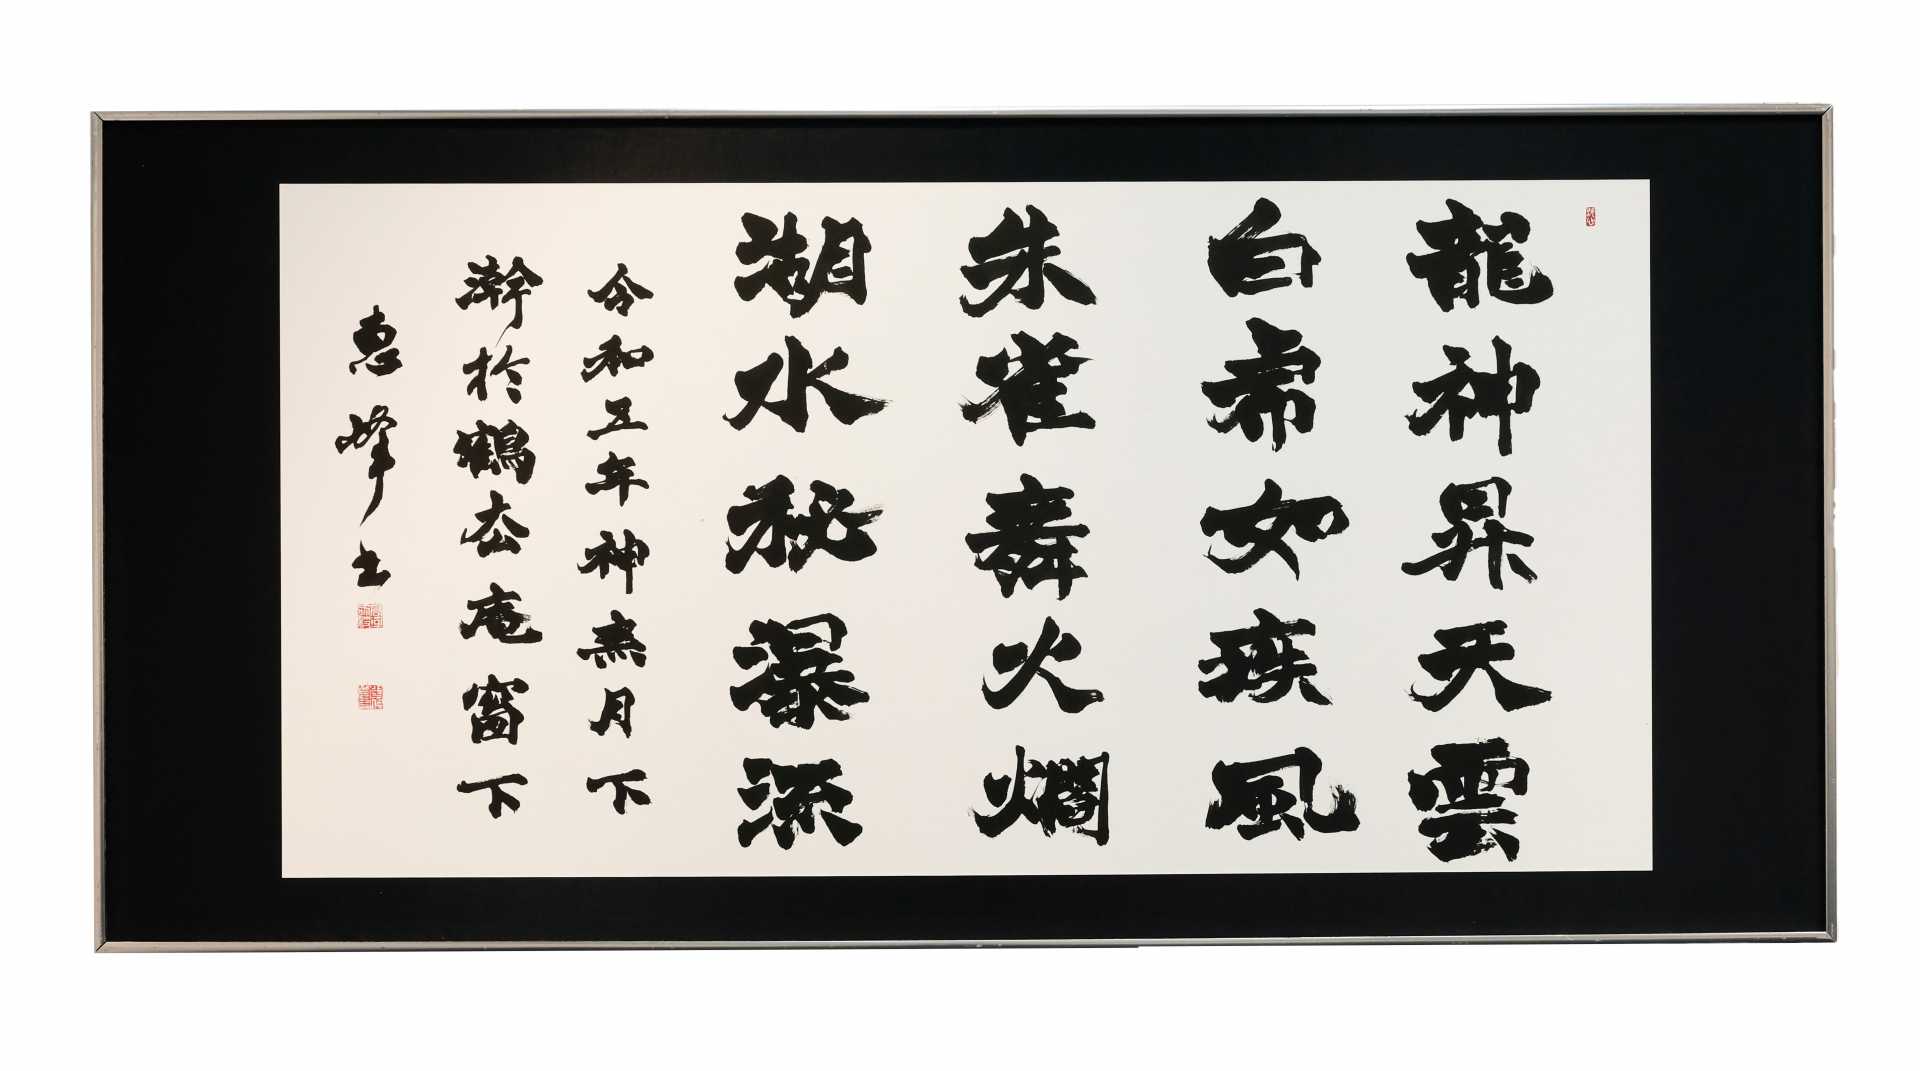 龍神昇天雲
白帍如疾風
朱雀舞火爛
湖水秘瀑流
令和五年神無月下
澣於鶴峦庵窗下
恵峰書